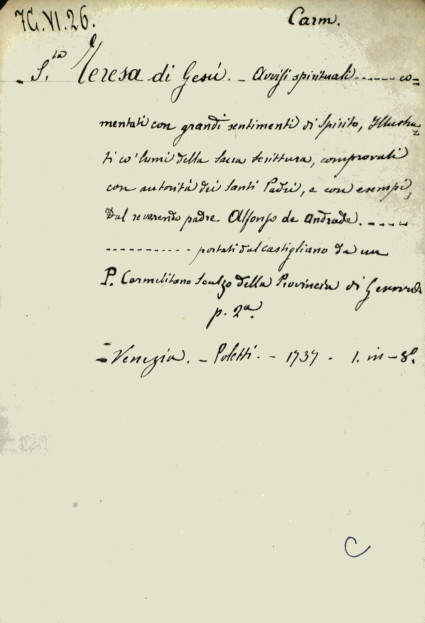 7G.VI.26.
Carm.
- S.ta Teresa di Gesù. - Avvisi spirituali ...... co-
mentati con grandi sentimenti di spirito, Illustra-
ti co' lumi della sacra scrittura, comprovati
con autorità dei Santi Padri, e con esempi,
Dal reverendo padre Alfonso de Andrade. .....
............ portati dal castigliano da un
P. Carmelitano Scalzo della Provincia di Genova
p. 2a.
- Venezia. - Poletti. - 1737 - 1. in - 8o.
C